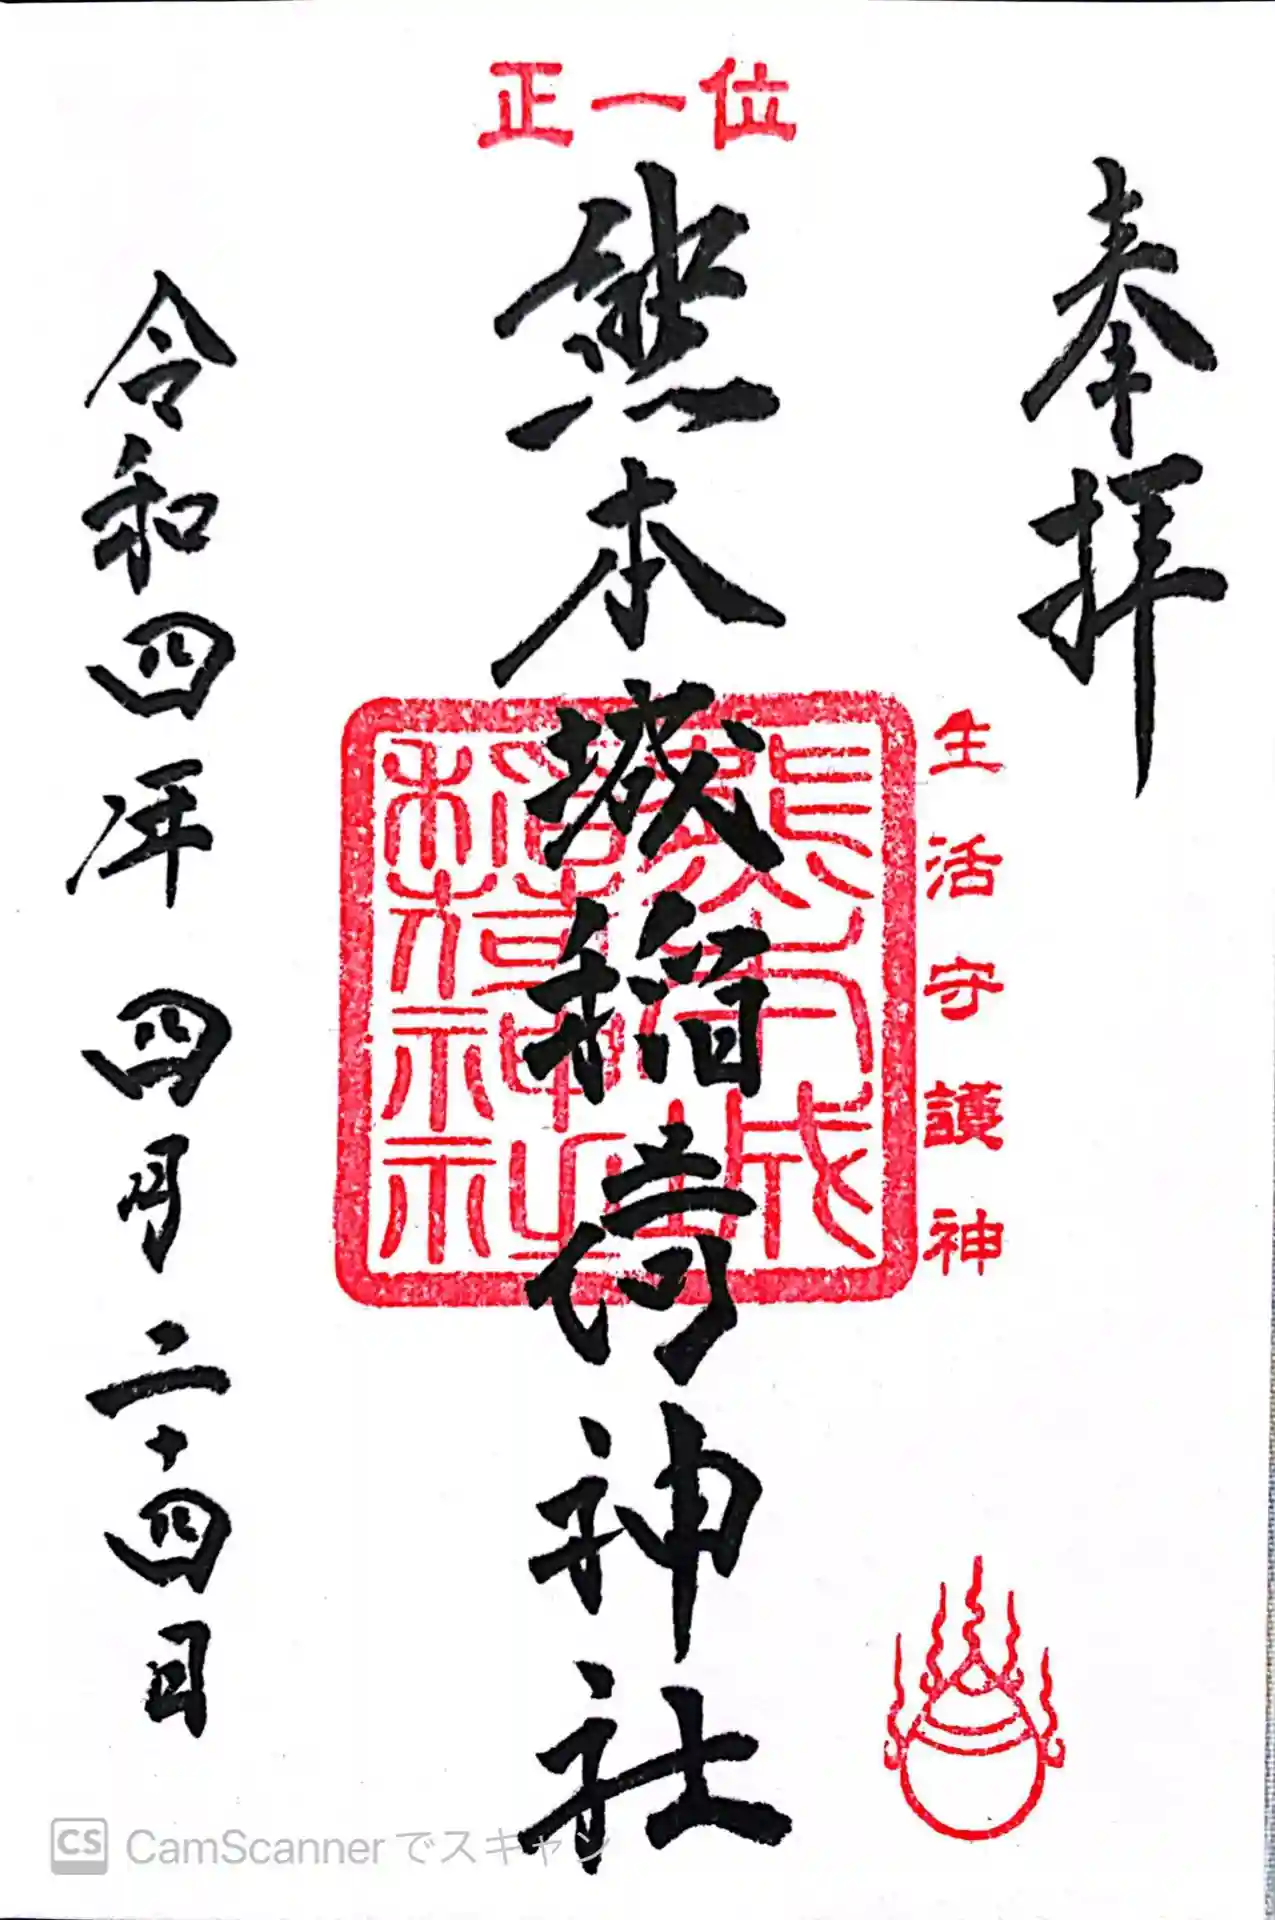 正一位
奉拝
生活守護神
熊本城稲荷神社
熊本城
稲荷神社
令和四年 四月 二十四日
CS CamScannerでスキャン